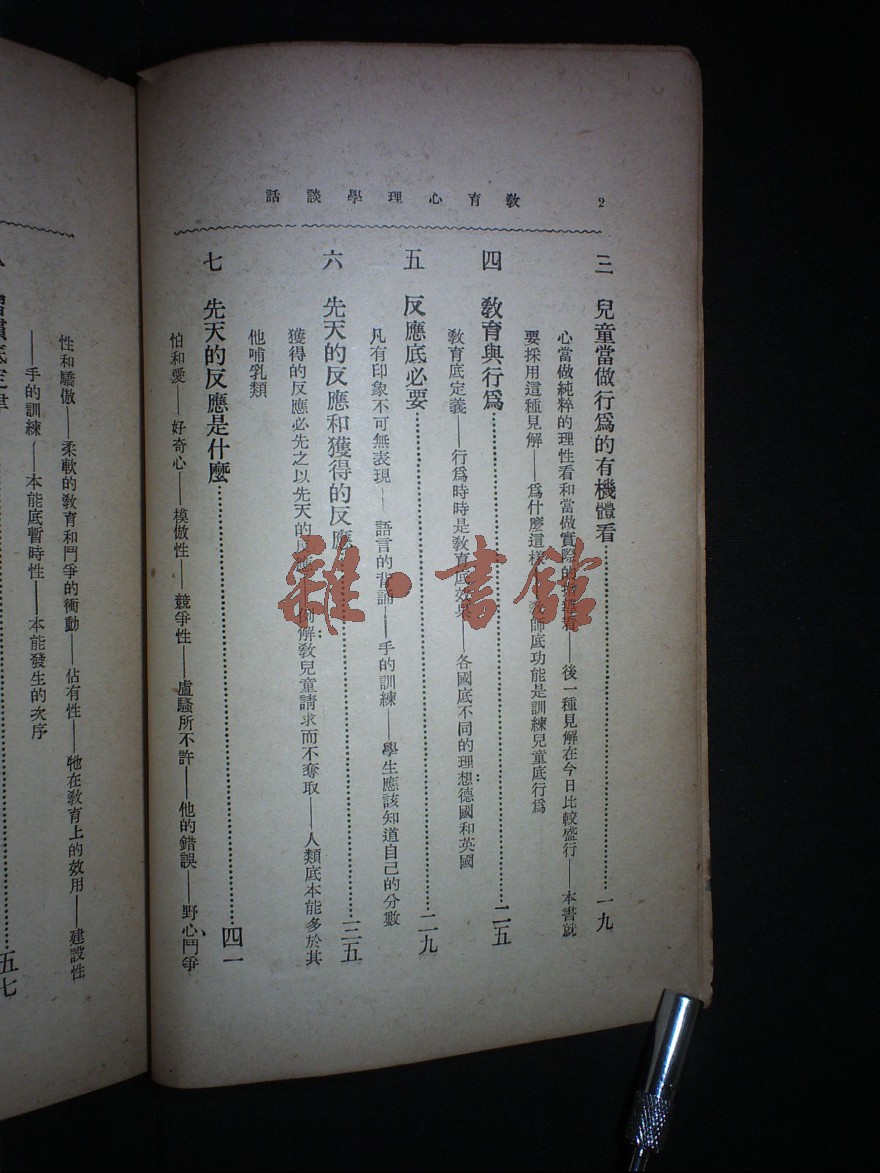 教育心理學談話 2
三 兒童當做行爲的有機體看 一九
心當做純粹的理性看和當做實際的指導看——後一種見解在今日比較盛行——本書就
要採用這種見解——爲什麼這樣——教師底功能是訓練兒童底行爲
四 教育與行爲 二五
教育底定義——行爲時時是教育底效果——各國底不同的理想德國和英國
五 反應底必要 二九
凡有印象不可無表現——語言的背誦——手的訓練——學生應該知道自己的分數
六 先天的反應和獲得的反應 三五
獲得的反應必先之以先天的反應——例解教兒童請求而不奪取——人類底本能多於其
他哺乳類
七 先天的反應是什麼 四一
怕和愛——好奇心——模倣性——競爭性——盧騷所不許——他的錯誤——野心、鬥爭
性和驕傲——柔軟的教育和鬥爭的衝動——佔有性——牠在教育上的效用——建設性
——手的訓練——本能底暫時性——本能發生的次序
習慣底定律 五七
雜·書館